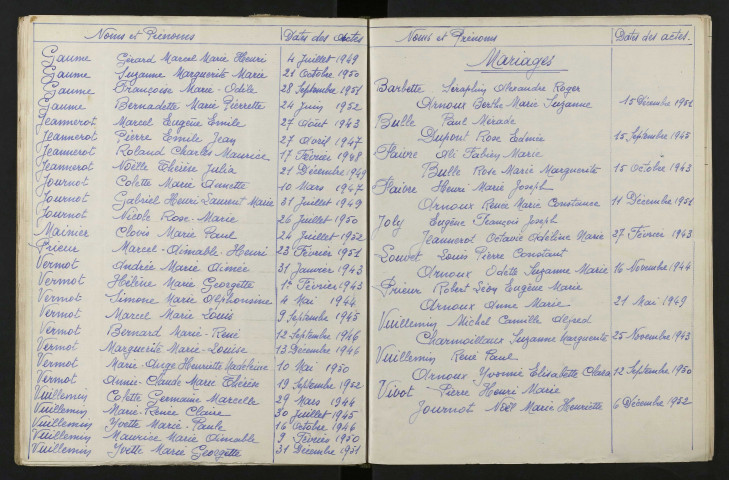 Noms et Prénoms Dates des actes
Gaume Gérard Marcel Marie Henri 4 Juillet 1949
Gaume Suzanne Marguerite Marie 21 Octobre 1950
Gaume Françoise Marie-Odile 28 Septembre 1951
Gaume Bernadette Marie Pierrette 24 Juin 1952
Jeannerot Marcel Eugène Emile 27 Août 1943
Jeannerot Pierre Emile Jean 27 Avril 1947
Jeannerot Roland Charles Maurice 17 Février 1948
Jeannerot Noëlle Thérèse Julia 21 Décembre 1949
Journot Colette Marie Annette 10 Mars 1947
Journot Gabriel Henri Laurent Marie 31 Juillet 1949
Journot Nicole Rose-Marie 26 Juillet 1950
Mainier Clovis Marie Paul 24 Juillet 1952
Prieur Marcel-Aimable-Henri 23 Février 1951
Vermot Andrée Marie Aimée 31 Janvier 1943
Vermot Hélène Marie Georgette 1er Février 1943
Vermot Simone Marie Alphonsine 4 Mai 1944
Vermot Marcel Marie Louis 9 Septembre 1945
Vermot Bernard Marie-René 12 Septembre 1946
Vermot Marguerite Marie-Louise 13 Décembre 1946
Vermot Marie-Ange Henriette Madeleine 10 Mai 1950
Vermot Annie-Claude Marie Thérèse 19 Septembre 1952
Vuillemin Colette Germaine Marcelle 29 Mars 1944
Vuillemin Marie-Renée Claire 30 Juillet 1945
Vuillemin Yvette Marie-Paule 16 Octobre 1946
Vuillemin Maurice Marie Aimable 9 Février 1950
Vuillemin Yvette Marie Georgette 31 Décembre 1951
Noms et Prénoms Dates des actes.
Mariages
Barbette Séraphin Alexandre Roger
Arnoux Berthe Marie Suzanne 15 Décembre 1951
Bulle Paul Mérade
Dupont Rose Edmée 15 Septembre 1945
Faivre Ali Fabien Marie
Bulle Rose Marie Marguerite 15 Octobre 1943
Faivre Henri Marie Joseph
Arnoux Renée Marie Constance 11 Décembre 1951
Joly Eugène François Joseph
Jeannerot Octavie Adeline Marie 27 Février 1943
Louvet Louis Pierre Constant
Arnoux Odette Suzanne Marie 16 Novembre 1944
Prieur Robert Eugène Marie
Arnoux Anne Marie 21 Mai 1949
Vuillemin Michel Camille Alfred
Charmoillaux Suzanne Marguerite 25 Novembre 1943
Vuillemin René Paul
Arnoux Yvonne Elisabette Clara 12 Septembre 1950
Vivot Pierre Henri Marie
Journot Noël Marie Henriette 6 Décembre 1952